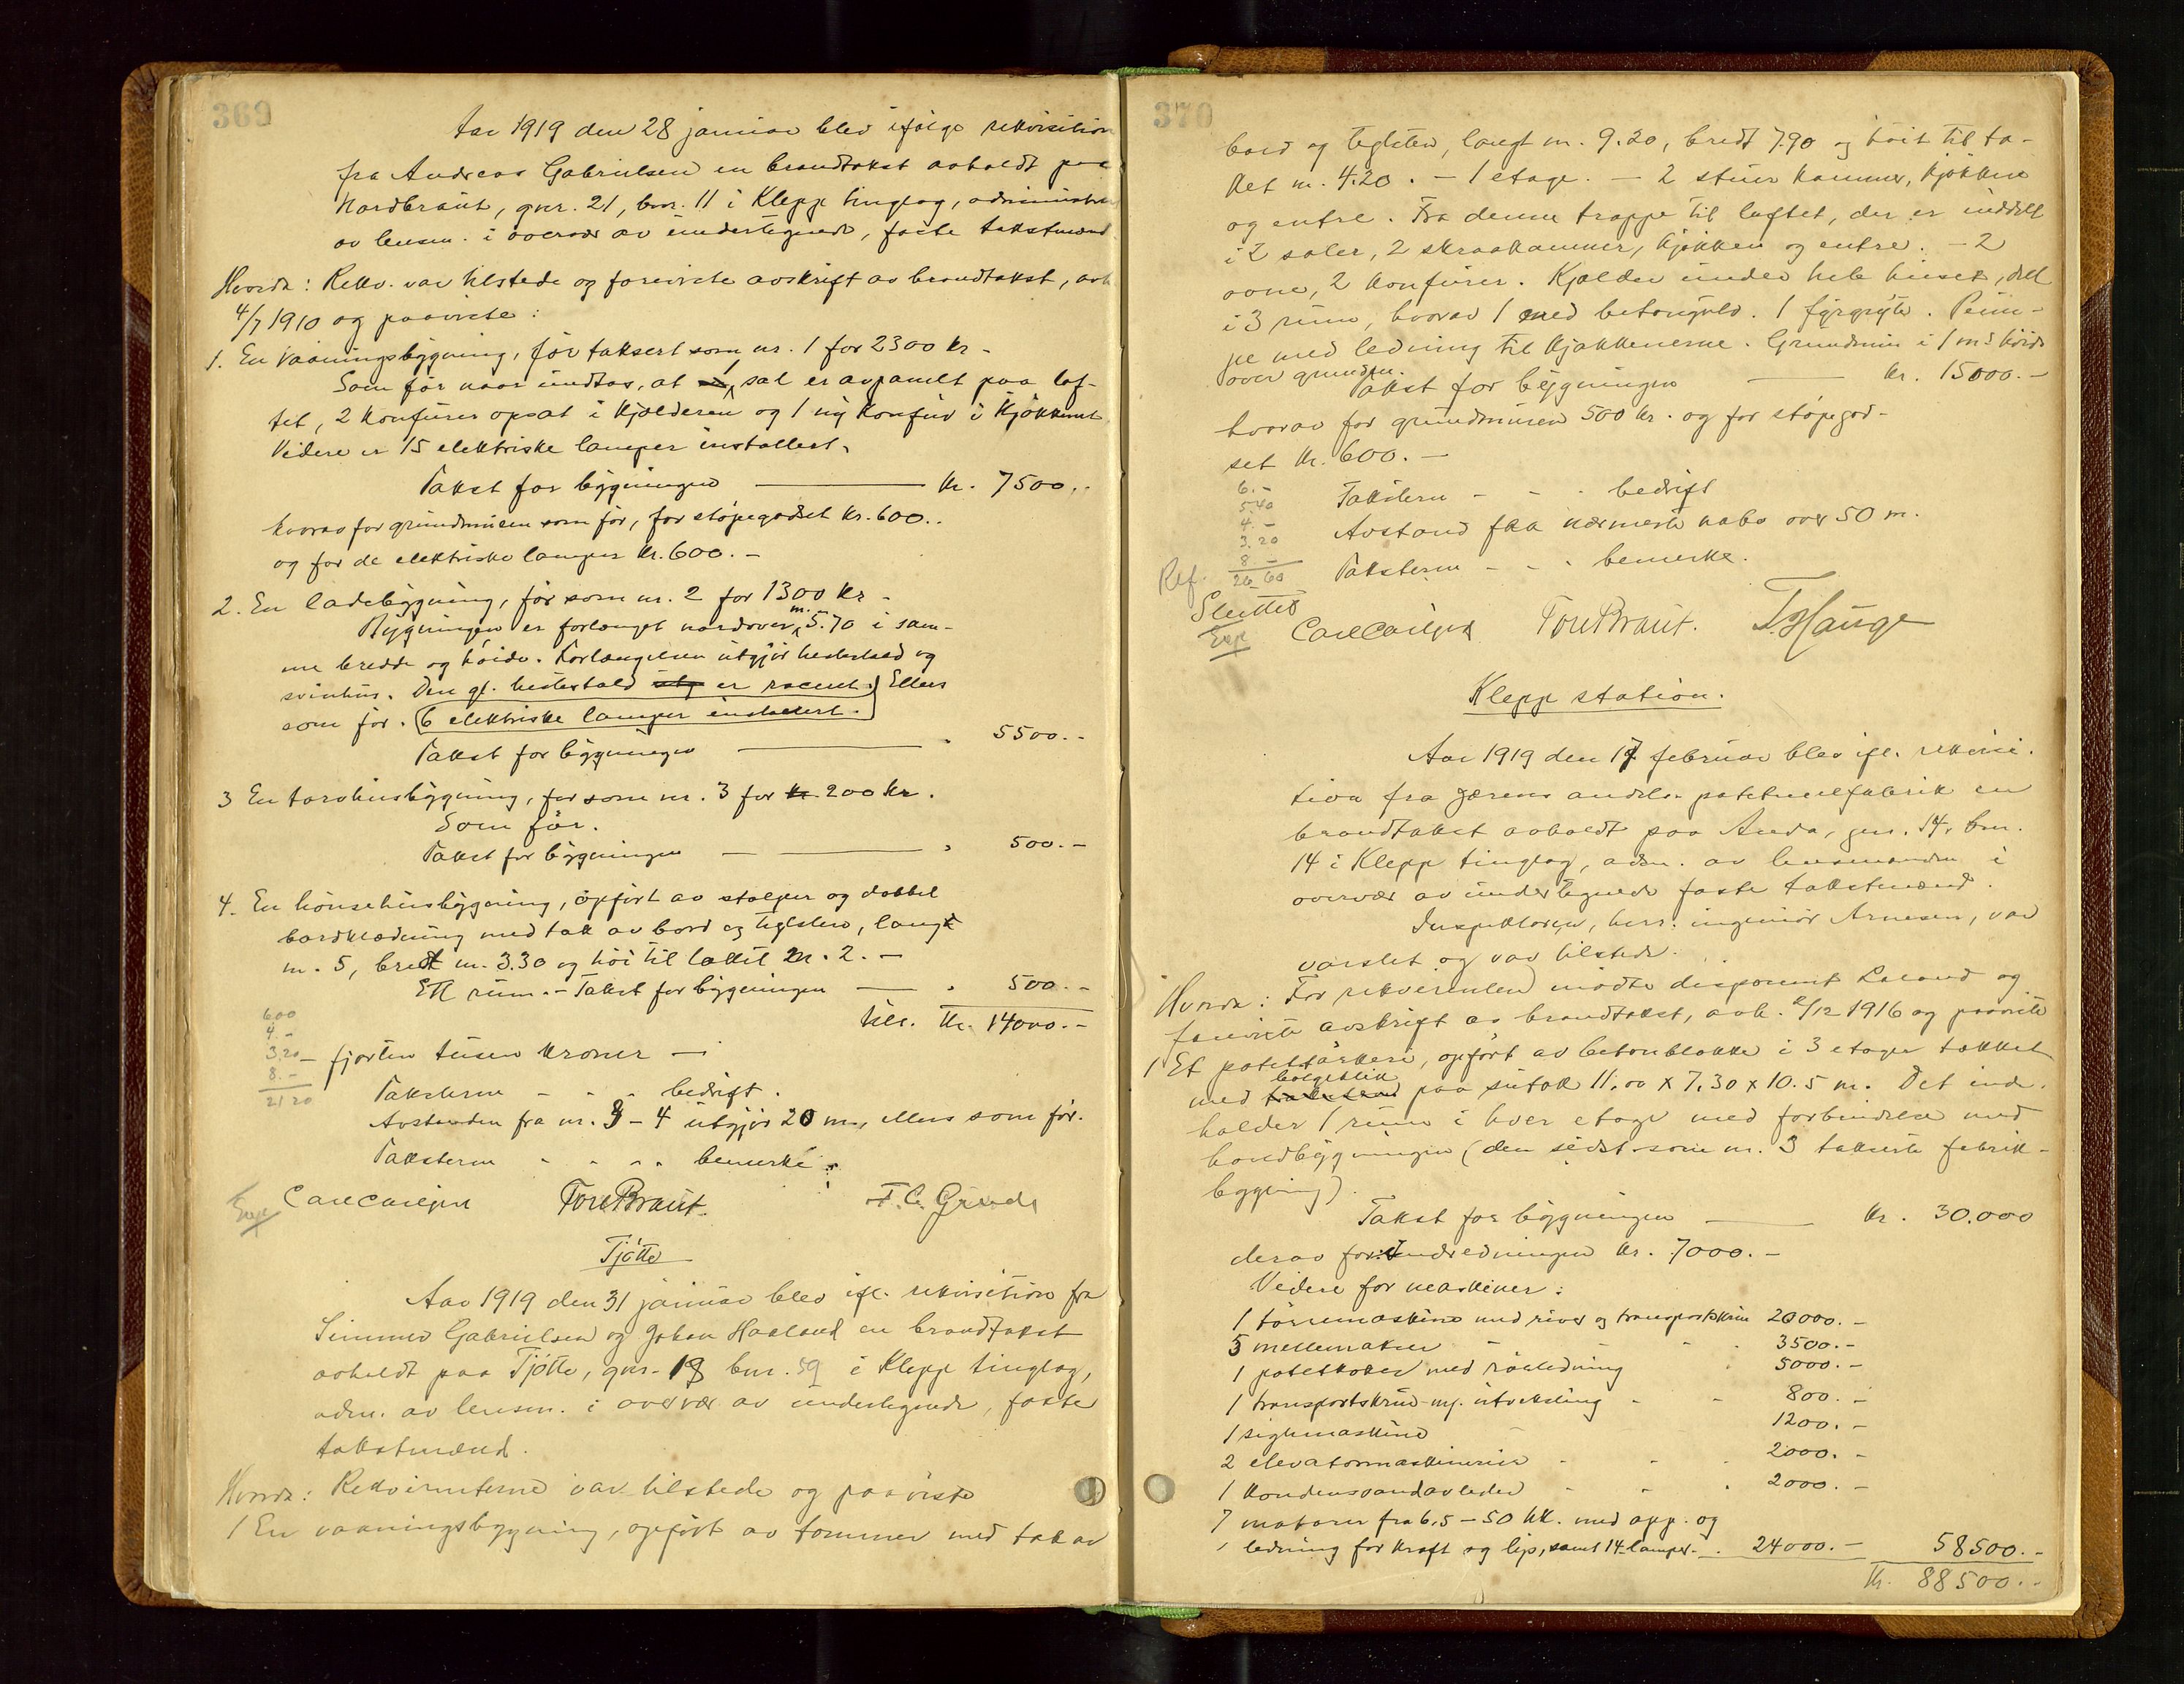 369
Aar 1919 den 28 januar blev ifølge rekvisition
fra Andreas Gabrielsen en brandtakst avholdt paa
Nordbraut, gnr. 21, bnr. 11 i Klepp tinglag, administre
av lensm. i overvær av undertegnede, faste takstmænd
Hvorda: Rekv. var tilstede og foreviste avskrift av brandtakst, avh
4/7 1910 og paaviste:
1. En vaaningsbygning, før taksert som nr. 1 for 2300 kr -
Som før naar undtas, at 1 sal er avpanelt paa lof-
tet, 2 konfurer opsat i kjælderen og 1 ny konfur i kjøkkenet
Videre er 15 elektriske lamper installert.
Takst for bygningen — kr. 7500.-
hvorav for grundmuren som før, for støpegodset kr. 600..
og for de elektriske lamper kr. 600. -
2. En ladebygning, før som nr. 2 for 1300 kr -
Bygningen er forlænget nordover m. 5.70 i sam-
me bredde og høide. Forlængelsen utgjør hestestald og
svinhus. Den gl. hestestald er raceret. Ellers
som før. (6 elektriske lamper installert.)
Takst for bygningen — " 5500.-
3 En torvhusbygning, før som nr. 3 for kr 200 kr.
Som før.
Takst for bygningen — " 500.-
4. En hønsehusbygning, opført av stolper og dobbel
bordklædning med tak av bord og teglsten, langt
m. 5, bredt m. 3.30 og høi til taket m. 2. -
Ett rum. - Takst for bygningen — " 500.-
tils. kr. 14000.-
600
4.-
3.20
8.-
21 20
- fjorten tusen kroner -
Taksterne - - - bedrift.
Avstanden fra nr. 3 - 4 utgjør 20 m, ellers som før.
Taksterne - - - - bemerke:
Exp
Tore Braut.
Tjøtta
Aar 1919 den 31 januar blev ifl. rekvisition fra
Simmer Gabrielsen og Johan Haaland en brandtakst
avholdt paa Tjøtta, gnr. 18 bnr. 59 i Klepp tinglag,
adm. av lensm. i overvær av undertegnede, faste
takstmænd.
Hvorda: Rekvirenterne var tilstede og paaviste
1 En vaaningsbygning, opført av tømmer med tak av
370
bord og teglsten, langt m. 9.20, bredt 7.90 og høit til ta-
ket m. 4.20. - 1 etage. - 2 stuer kammer, kjøkken
og entre. Fra denne trappe til loftet, der er inddelt
i 2 saler, 2 skraakammer, kjøkken og entre. - 2
ovne, 2 konfurer. Kjælder under hele huset, delt
i 3 rum, hvorav 1 med betongulv. 1 fyrgryte. Pum-
pe med ledning til kjøkkenerne. Grundmur i 1 m's høide
over grunden.
Takst for bygningen — kr. 15000.-
hvorav for grundmuren 500 kr. og for støpegod-
set kr. 600. -
6.-
5.40
4.-
3.20
8 -
26 60
Taksterne - - - bedrift
Avstand fra nærmeste nabo over 50 m.
Taksterne - - - bemerke.
Ref.
Sluttet
Exp
Tore Braut. T. Hauge
Klepp station.
Aar 1919 den 17 februar blev ifl. rekvisi-
tion fra Jærens andels potetmelfabrik en
brandtakst avholdt paa Anda, gnr. 14, bnr.
14 i Klepp tinglag, adm. av lensmanden i
overvær av undertegnede faste takstmænd.
Inspektøren, herr. ingeniør Arnesen, var
varslet og var tilstede.
Hvorda: For rekvirenten møtte disponent Laland og
foreviste avskrift av brandtakst, avh. 2/12 1916 og paaviste
1 Et potettørkeri, opført av betonblokke i 3 etager takket
med bølgeblik paa sutak 11,00 x 7.30 x 10.5 m. Det inde-
holder 1 rum i hver etage med forbindelse med
hovedbygningen (den sidst som nr. 3 takserte fabrik-
bygning).
Takst for bygningen — kr. 30.000
derav for indredningen kr. 7000.-
Videre for maskiner:
1 tørremaskine med river og transportskrue 20000.-
5 mellemakser - - 3500.-
1 potetkoker med rørledning " 5000.-
1 transportskrue m. utveksling - - 800.-
1 sigtemaskine - 1200.-
2 elevatormaskinerier - - - 2000.-
1 kondensvandavleder - - - 2000.-
7 motorer fra 6,5 - 50 hk. med app. og
ledning for kraft og lys, samt 14 lamper - 24000.- 58500.-
kr. 88500.-